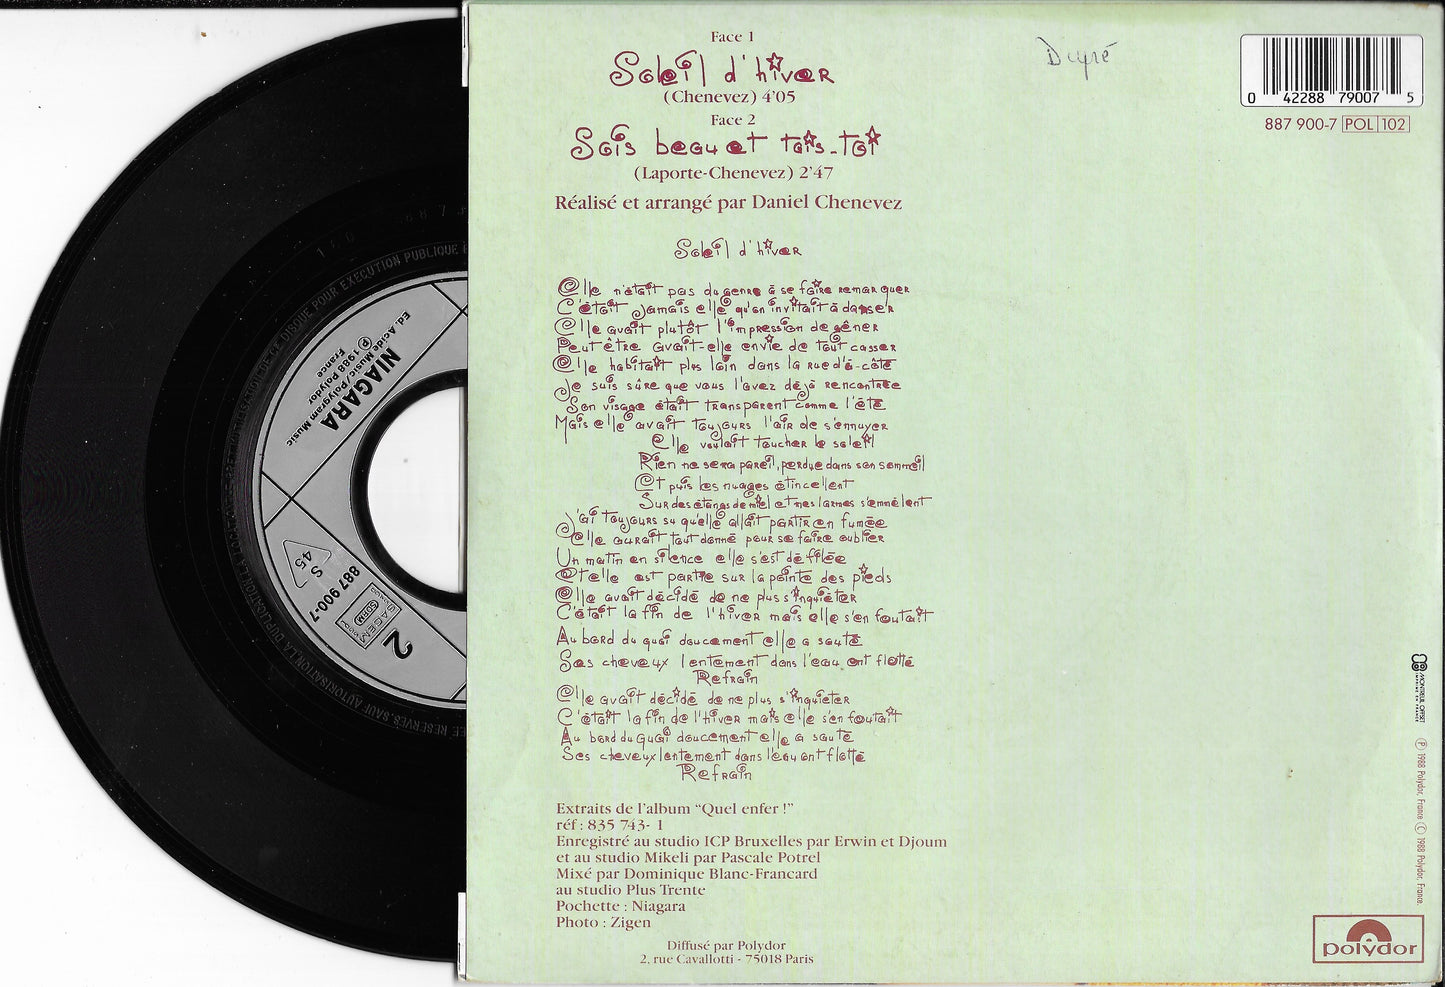 Face 1
Soleil d'hiver
(Chenevez) 4'05
Face 2
Sois beau et tais-toi
(Laporte-Chenevez) 2'47
Réalisé et arrangé par Daniel Chenevez
Soleil d'hiver
Elle n'était pas du genre à se faire remarquer
C'était jamais elle qu'on invitait à danser
Elle avait plutôt l'impression de gêner
Peut être avait-elle envie de tout casser
Elle habitait plus loin dans la rue d'à-côté
Je suis sûre que vous l'avez déjà rencontrée
Son visage était transparent comme l'été
Mais elle avait toujours l'air de s'ennuyer
Elle voulait toucher le soleil
Rien ne sera pareil, perdue dans son sommeil
Et puis les nuages étincellent
Sur des étangs de miel et mes larmes s'emmêlent
J'ai toujours su qu'elle allait partir en fumée
Elle aurait tout donné pour se faire oublier
Un matin en silence elle s'est défilée
Et elle est partie sur la pointe des pieds
Elle avait décidé de ne plus s'inquiéter
C'était la fin de l'hiver mais elle s'en foutait
Au bord du quai doucement elle a sauté
Ses cheveux lentement dans l'eau ont flotté
Refrain
Elle avait décidé de ne plus s'inquiéter
C'était la fin de l'hiver mais elle s'en foutait
Au bord du quai doucement elle a sauté
Ses cheveux lentement dans l'eau ont flotté
Refrain
Extraits de l'album "Quel enfer !"
réf : 835 743- 1
Enregistré au studio ICP Bruxelles par Erwin et Djoum
et au studio Mikeli par Pascale Potrel
Mixé par Dominique Blanc-Francard
au studio Plus Trente
Pochette : Niagara
Photo : Zigen
Diffusé par Polydor
2, rue Cavallotti - 75018 Paris
0 42288 79007 5
887 900-7 POL 102
MONTREUIL OFFSET
IMPRIMÉ EN FRANCE
℗ 1988 Polydor, France © 1988 Polydor, France.
polydor
NIAGARA
℗ 1988 Polydor
France
Ed. Acide Music/Polygram Music
S
45
887 900-7
SACEM
SDRM
2
DE CE DISQUE POUR EXECUTION PUBLIQUE
RESERVES. SAUF AUTORISATION, LA DUPLICATION, LA LOCATION